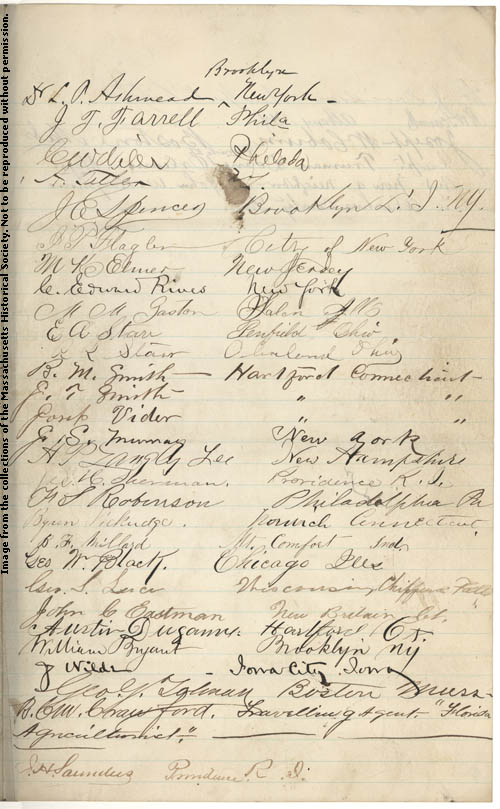 Brooklyn
Dr L. P. Ashmead ^ New York -
J. T. Farrell Phila
J E Spencer Brooklyn L. I. NY.
J. P. Flagler City of New York
M K Elmer New Jersey
C. Edward Rives New York
M. M. Gaston
E A Starr Ohio
Starr Ohio
B. M. Smith Hartford Connecticut
E. T. Smith " "
Vider " "
J. E. Murray New York
Lee New Hampshire
Sherman. Providence R. I.
F S Robinson Philadelphia Pa
Connecticut
B. F. Millard Mt. Comfort Ind.
Geo W. Black. Chicago Ills
Geo. S. Wisconsin, Chippewa Falls
John C Eastman New Britain Ct.
Austin Duganne. Hartford Ct.
William Bryant Brooklyn NJ
J Wilde Iowa City, Iowa
Geo. Boston Mass
B. C. W. Crawford. Travelling Agent. "Florida
Agriculturist."
J. H. Saunders Providence R. I.
Image from the collections of the Massachusetts Historical Society. Not to be reproduced without permission.